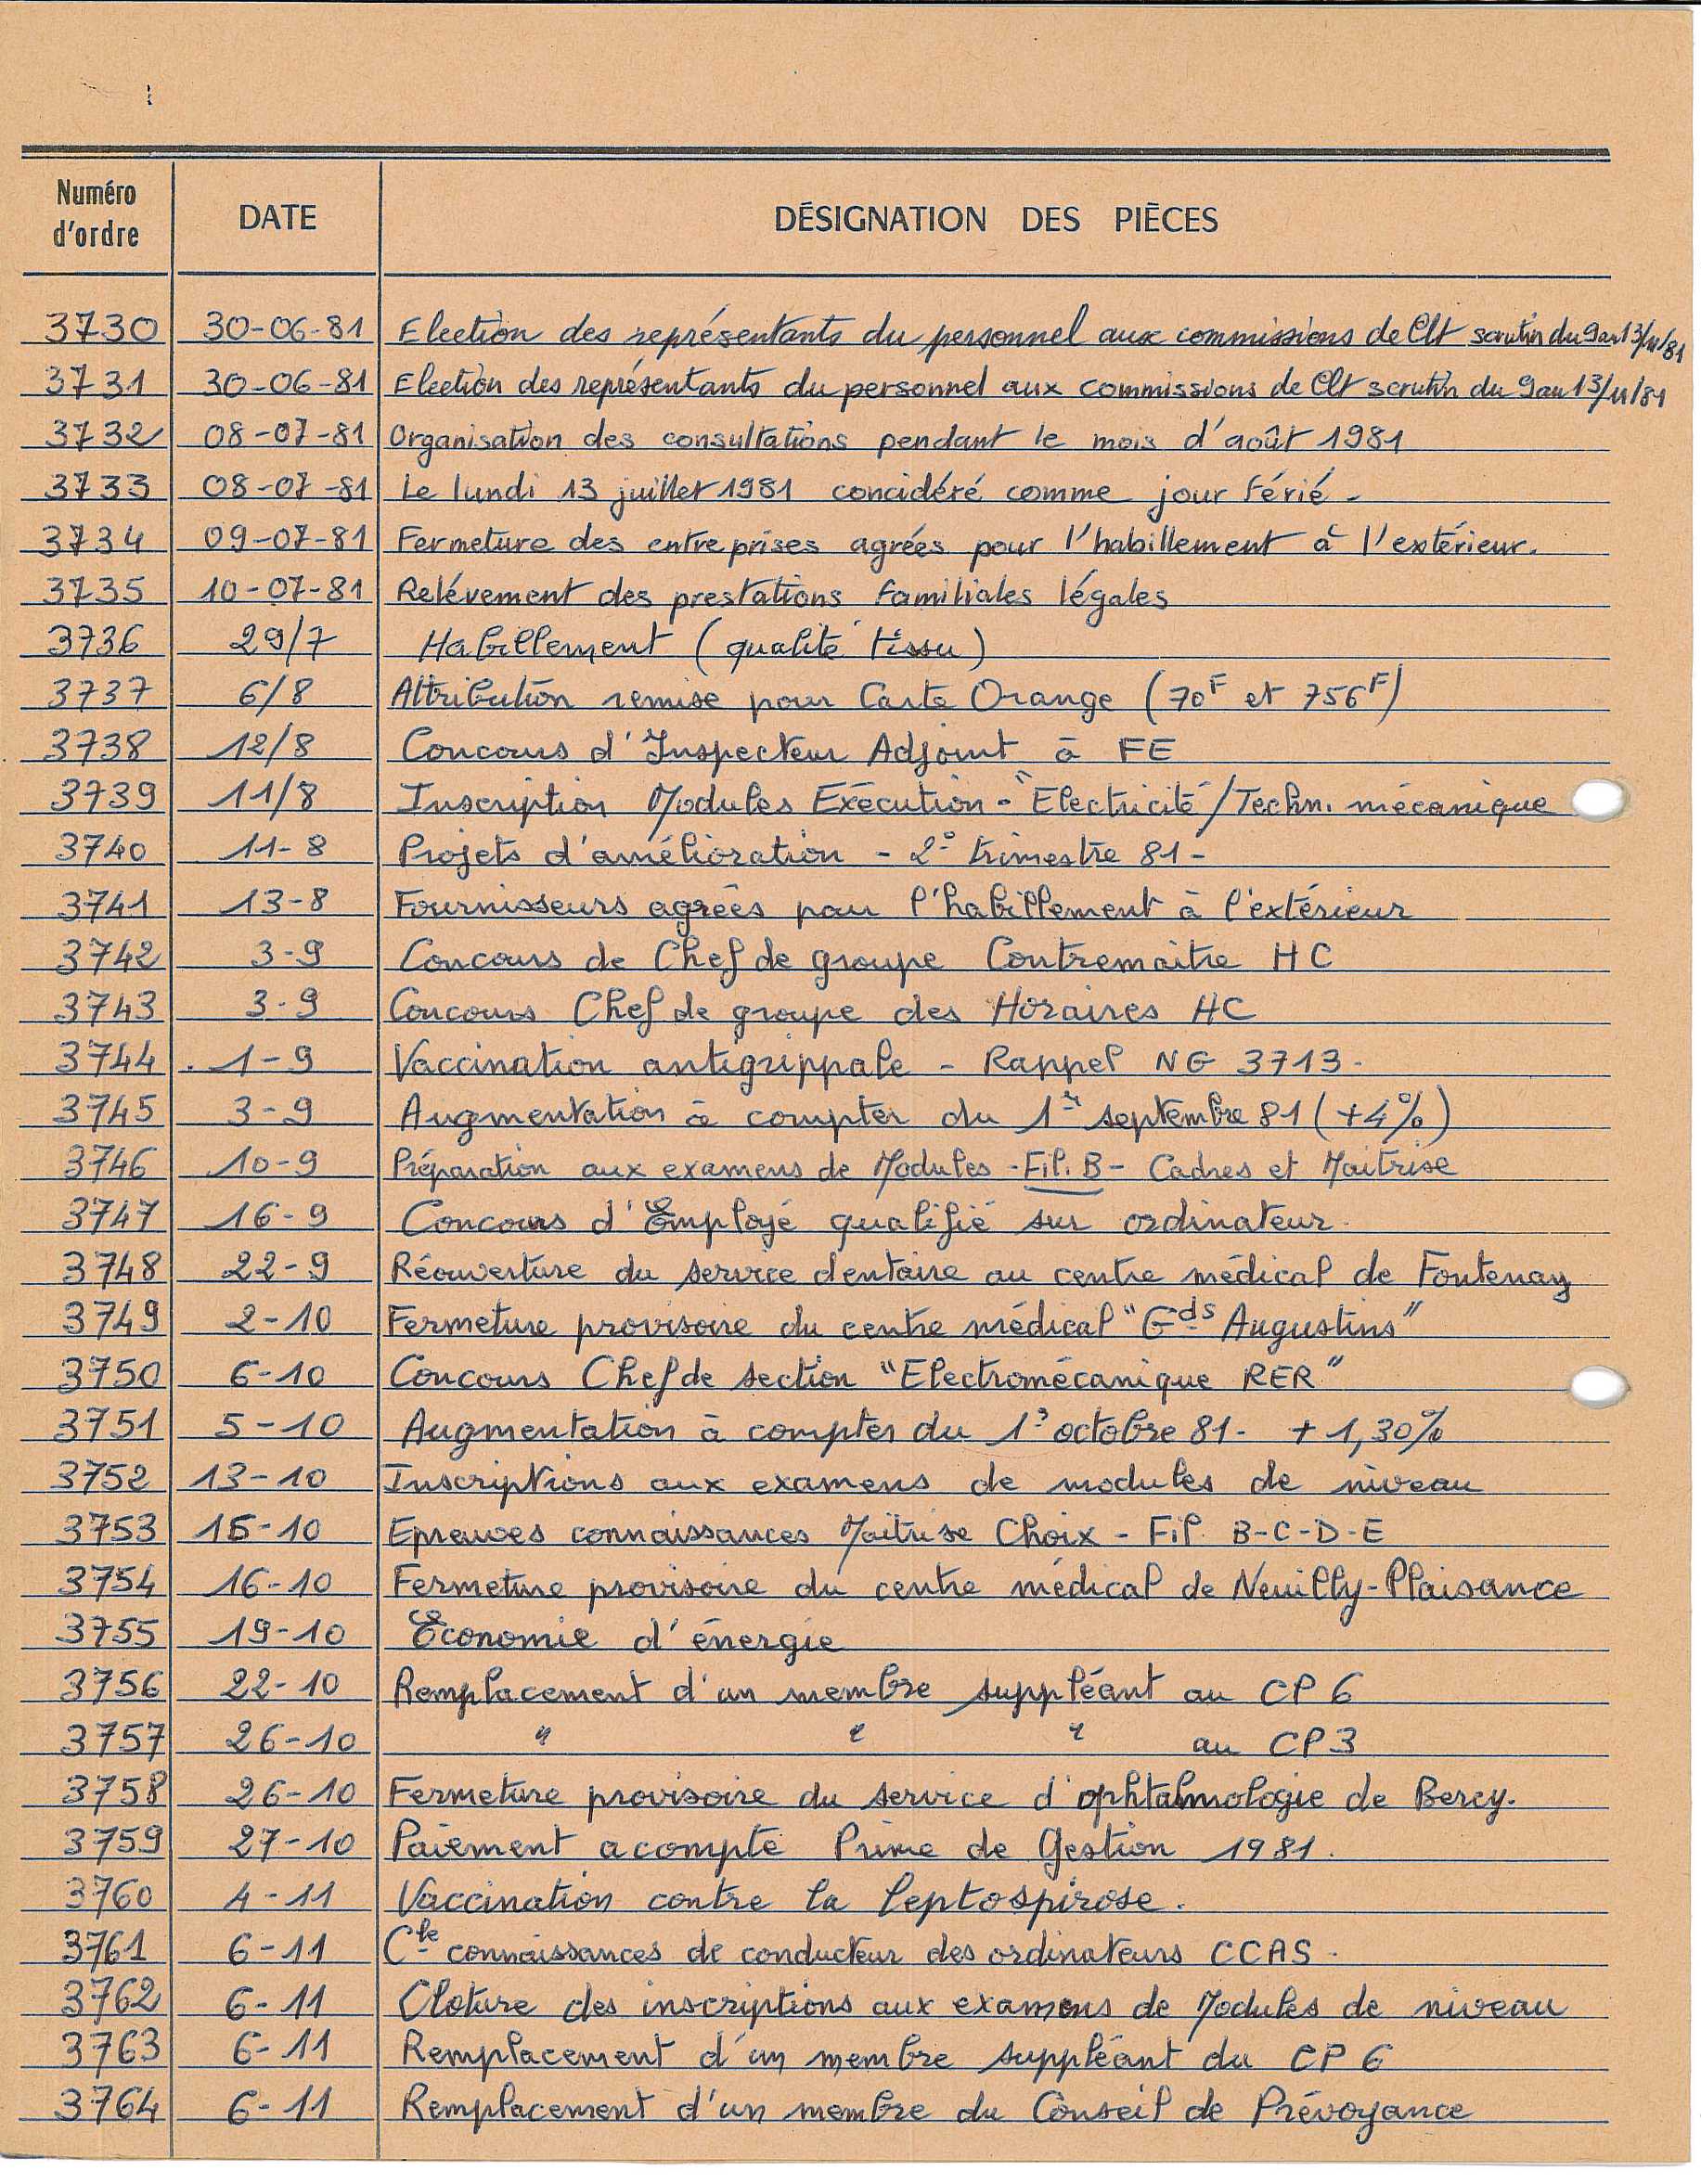 Numéro d'ordre DATE DÉSIGNATION DES PIÈCES
3730 30-06-81 Election des représentants du personnel aux commissions de Clt scrutin du 9 au 13/11/81
3731 30-06-81 Election des représentants du personnel aux commissions de Clt scrutin du 9 au 13/11/81
3732 08-07-81 Organisation des consultations pendant le mois d'août 1981
3733 08-07-81 Le lundi 13 juillet 1981 concidéré comme jour férié -
3734 09-07-81 Fermeture des entreprises agrées pour l'habillement à l'extérieur.
3735 10-07-81 Relévement des prestations familiales légales
3736 29/7 Habillement (qualité tissu)
3737 6/8 Attribution remise pour Carte Orange (70F et 756F)
3738 12/8 Concours d'Inspecteur Adjoint à FE
3739 11/8 Inscription Modules Exécution - Electricité/Techn. mécanique
3740 11-8 Projets d'amélioration - 2° trimestre 81 -
3741 13-8 Fournisseurs agréés pour l'habillement à l'extérieur
3742 3-9 Concours de Chef de groupe Contremaître HC
3743 3-9 Concours Chef de groupe des Horaires HC
3744 1-9 Vaccination antigrippale - Rappel NG 3713 -
3745 3-9 Augmentation à compter du 1er septembre 81 (+4%)
3746 10-9 Préparation aux examens de Modules - Fil. B - Cadres et Maitrise
3747 16-9 Concours d'Employé qualifié sur ordinateur.
3748 22-9 Réouverture du service dentaire au centre médical de Fontenay
3749 2-10 Fermeture provisoire du centre médical "Gds Augustins"
3750 6-10 Concours Chef de section "Electromécanique RER"
3751 5-10 Augmentation à compter du 1er octobre 81 - + 1,30%
3752 13-10 Inscriptions aux examens de modules de niveau
3753 15-10 Epreuves connaissances Maitrise Choix - Fil B-C-D-E
3754 16-10 Fermeture provisoire du centre médical de Neuilly-Plaisance
3755 19-10 Economie d'énergie
3756 22-10 Remplacement d'un membre suppléant au CP 6
3757 26-10 " " " au CP3
3758 26-10 Fermeture provisoire du service d'ophtalmologie de Bercy.
3759 27-10 Paiement acompte Prime de Gestion 1981.
3760 4-11 Vaccination contre la leptospirose.
3761 6-11 Cle connaissances de conducteur des ordinateurs CCAS -
3762 6-11 Cloture des inscriptions aux examens de Modules de niveau
3763 6-11 Remplacement d'un membre suppléant du CP 6
3764 6-11 Remplacement d'un membre du Conseil de Prévoyance